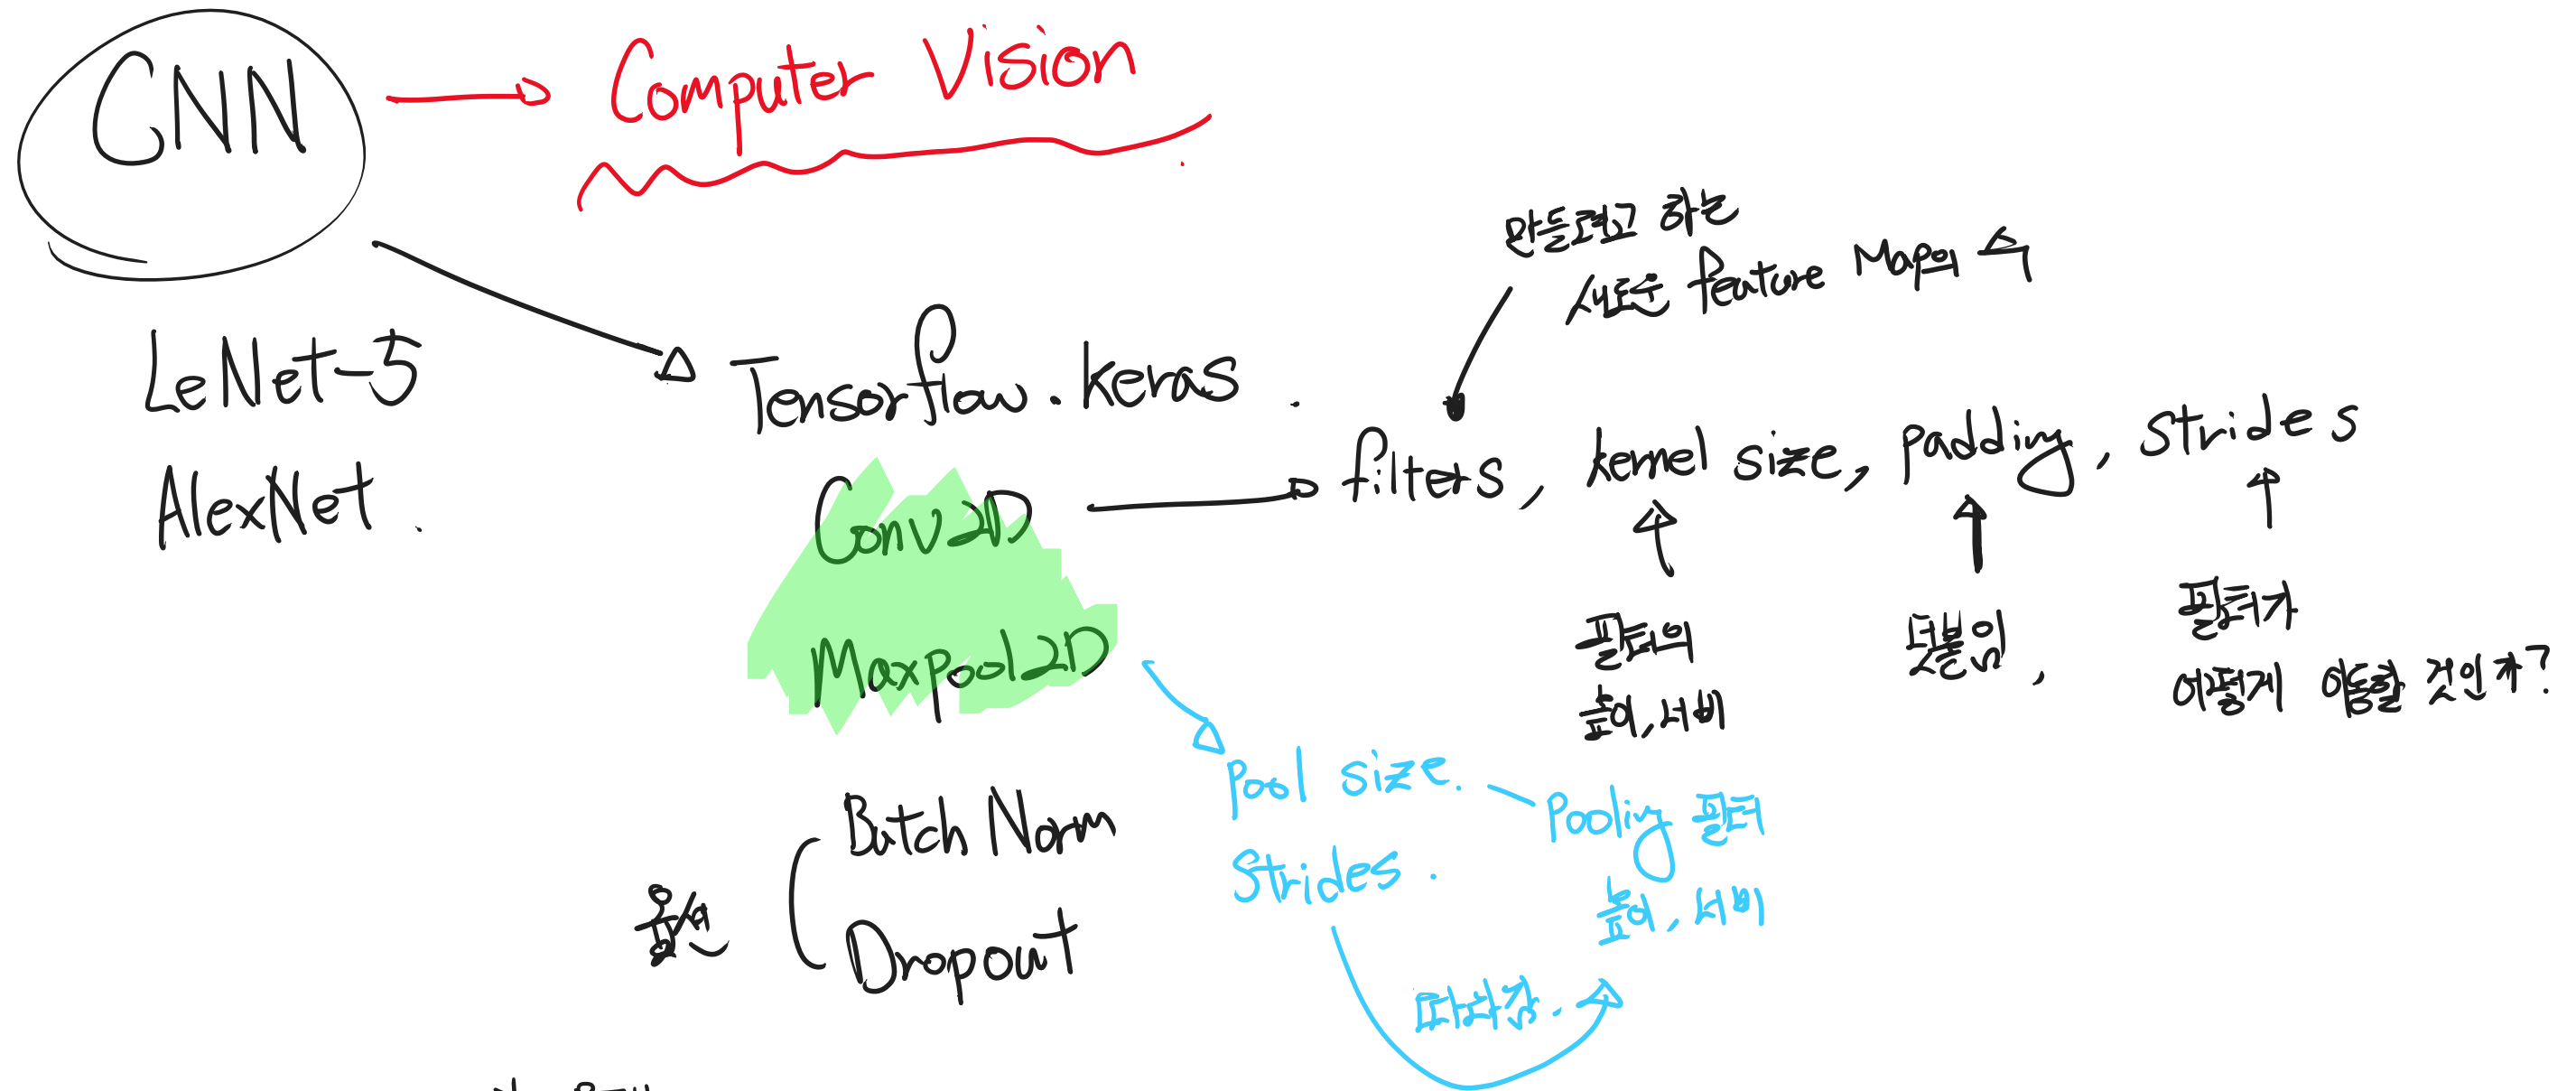 CNN
Computer Vision
LeNet-5
AlexNet.
Tensorflow.keras.
Conv2D
Maxpool2D
만들려고 하는
새로운 feature Map의 수
filters, kernel size, padding, strides
필터의
높이, 너비
덧붙임,
필터가
어떻게 이동할 것인가?
옵션
Batch Norm
Dropout
Pool size.
Strides.
Pooling 필터
높이, 너비
따라감.